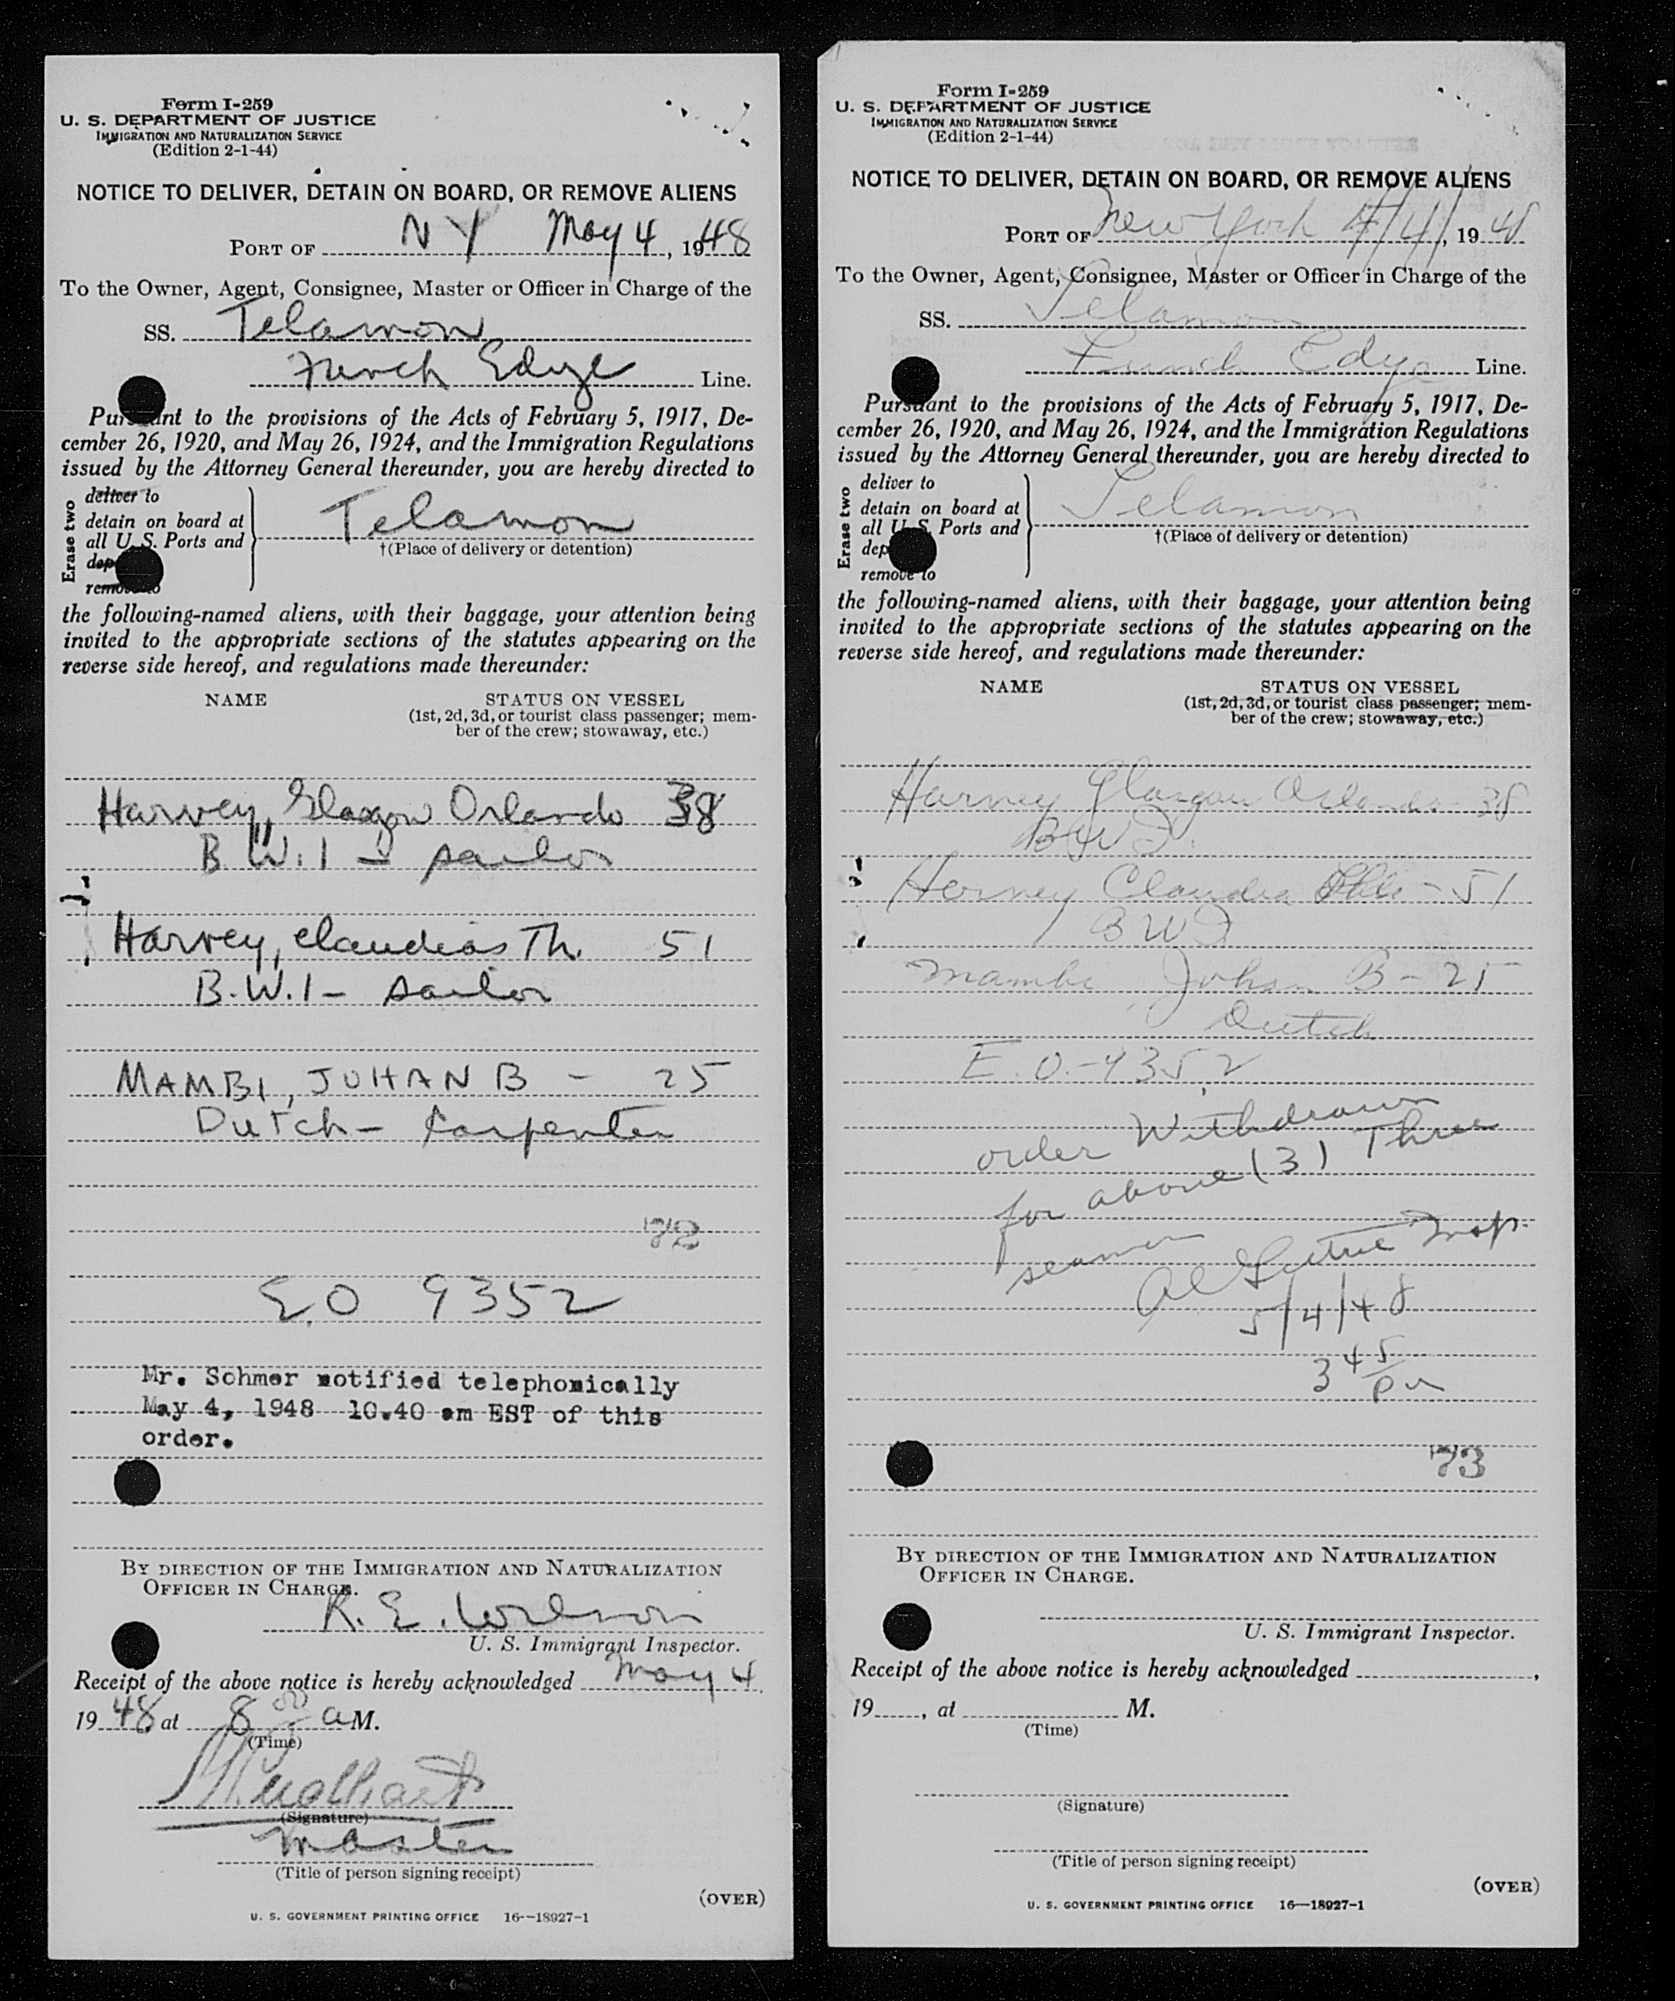 Form I-259
U. S. DEPARTMENT OF JUSTICE
IMMIGRATION AND NATURALIZATION SERVICE
(Edition 2-1-44)
NOTICE TO DELIVER, DETAIN ON BOARD, OR REMOVE ALIENS
PORT OF N Y May 4, 1948
To the Owner, Agent, Consignee, Master or Officer in Charge of the
SS. Telamon
Funch Edye Line.
Pursuant to the provisions of the Acts of February 5, 1917, De-
cember 26, 1920, and May 26, 1924, and the Immigration Regulations
issued by the Attorney General thereunder, you are hereby directed to
Erase two
deliver to
detain on board at
all U. S. Ports and
dep
remove to
Telamon
†(Place of delivery or detention)
the following-named aliens, with their baggage, your attention being
invited to the appropriate sections of the statutes appearing on the
reverse side hereof, and regulations made thereunder:
NAME STATUS ON VESSEL
(1st, 2d, 3d, or tourist class passenger; mem-
ber of the crew; stowaway, etc.)
Harvey, Glasgow Orlando 38
B.W.I - sailor
Harvey, Claudias Th. 51
B.W.I - sailor
MAMBI, JOHAN B - 25
Dutch - Carpenter
72
E.O 9352
Mr. Sohmer notified telephonically
May 4, 1948 10.40 am EST of this
order.
BY DIRECTION OF THE IMMIGRATION AND NATURALIZATION
OFFICER IN CHARGE.
R. E. Wilson
U. S. Immigrant Inspector.
Receipt of the above notice is hereby acknowledged May 4,
1948 at 8 00 a M.
(Time)
(Signature)
Master
(Title of person signing receipt)
(OVER)
U. S. GOVERNMENT PRINTING OFFICE 16—18927-1
Form I-259
U. S. DEPARTMENT OF JUSTICE
IMMIGRATION AND NATURALIZATION SERVICE
(Edition 2-1-44)
NOTICE TO DELIVER, DETAIN ON BOARD, OR REMOVE ALIENS
PORT OF New York 4/4/, 1948
To the Owner, Agent, Consignee, Master or Officer in Charge of the
SS. Telamon
Funch Edye Line.
Pursuant to the provisions of the Acts of February 5, 1917, De-
cember 26, 1920, and May 26, 1924, and the Immigration Regulations
issued by the Attorney General thereunder, you are hereby directed to
Erase two
deliver to
detain on board at
all U. S. Ports and
dep
remove to
Telamon
†(Place of delivery or detention)
the following-named aliens, with their baggage, your attention being
invited to the appropriate sections of the statutes appearing on the
reverse side hereof, and regulations made thereunder:
NAME STATUS ON VESSEL
(1st, 2d, 3d, or tourist class passenger; mem-
ber of the crew; stowaway, etc.)
Harvey Glasgow Orlando - 38
BWI.
Harvey Claudia - 51
BWI
Mambi Johan B - 25
Dutch
E.O.-9352
order Withdrawn
for above (3) Three
seamen
Insp.
5/4/48
3 45 pm
73
BY DIRECTION OF THE IMMIGRATION AND NATURALIZATION
OFFICER IN CHARGE.
U. S. Immigrant Inspector.
Receipt of the above notice is hereby acknowledged ,
19 , at M.
(Time)
(Signature)
(Title of person signing receipt)
(OVER)
U. S. GOVERNMENT PRINTING OFFICE 16—18927-1